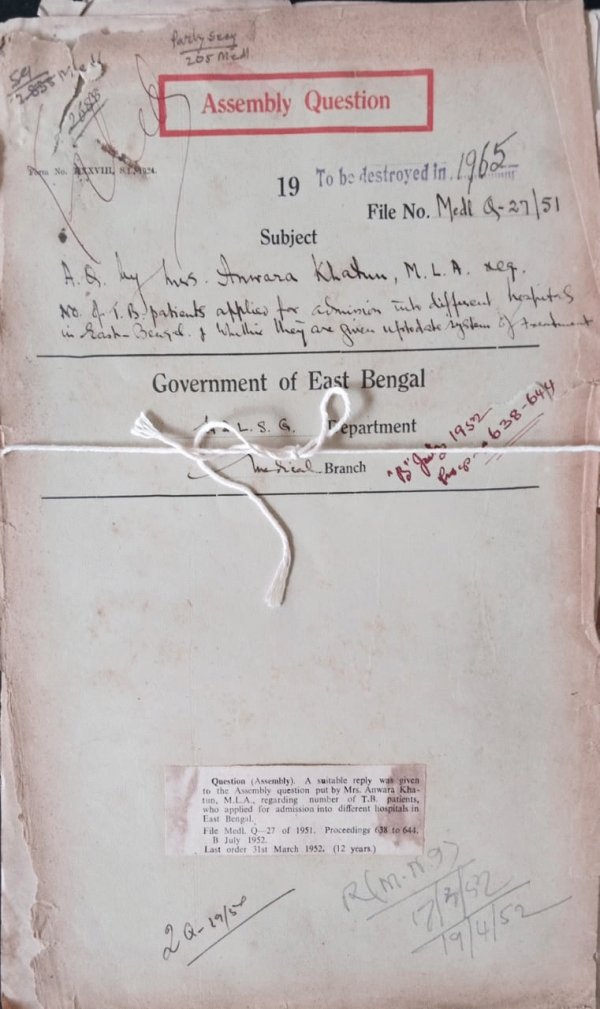 Party Secy
205 Medl
Assembly Question
Form No. XXXVIII, S.I. 1924.
19 To be destroyed in 1965
File No. Medl Q-27/51
Subject
A. Q. by Mrs. Anwara Khatun, M.L.A. reg.
No. of T.B. patients applied for admission into different hospitals
in East-Bengal & whether they are given uptodate system of treatment
Government of East Bengal
L. S. G. Department
Medical Branch
"B" July 1952
638-644
Question (Assembly). A suitable reply was given
to the Assembly question put by Mrs. Anwara Kha-
tun, M.L.A., regarding number of T.B. patients,
who applied for admission into different hospitals in
East Bengal.
File Medl. Q—27 of 1951. Proceedings 638 to 644.
B July 1952.
Last order 31st March 1952. (12 years.)
19/4/52